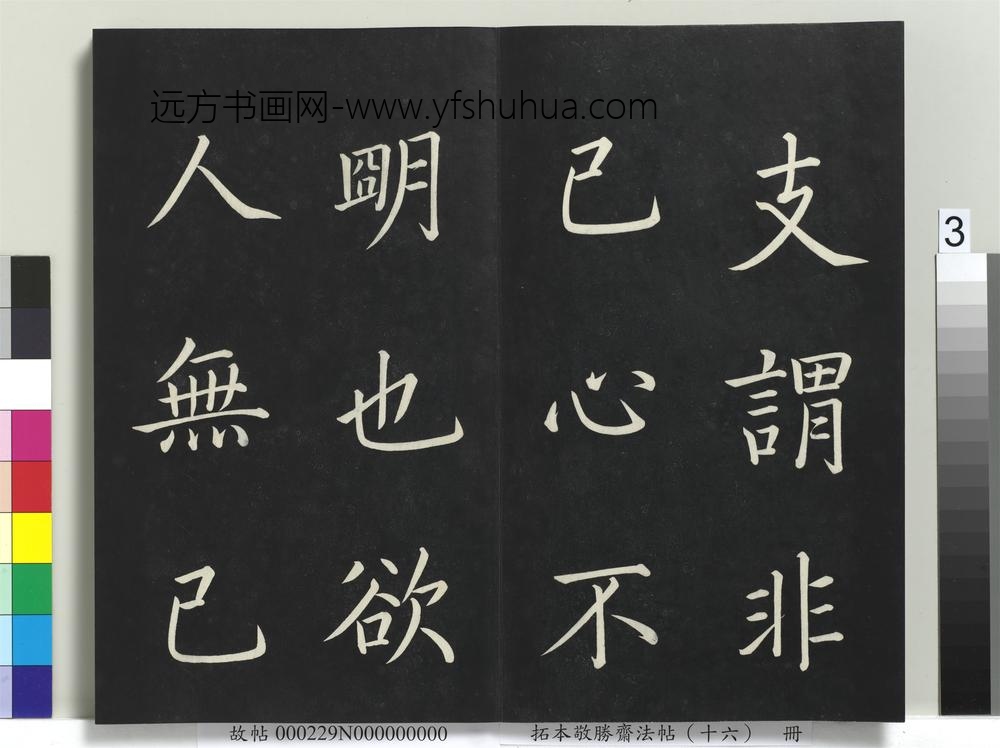 远方书画网-www.yfshuhua.com
支謂非
己心不
朙也欲
人無己
3
故帖 000229N000000000
拓本敬勝齋法帖（十六） 冊